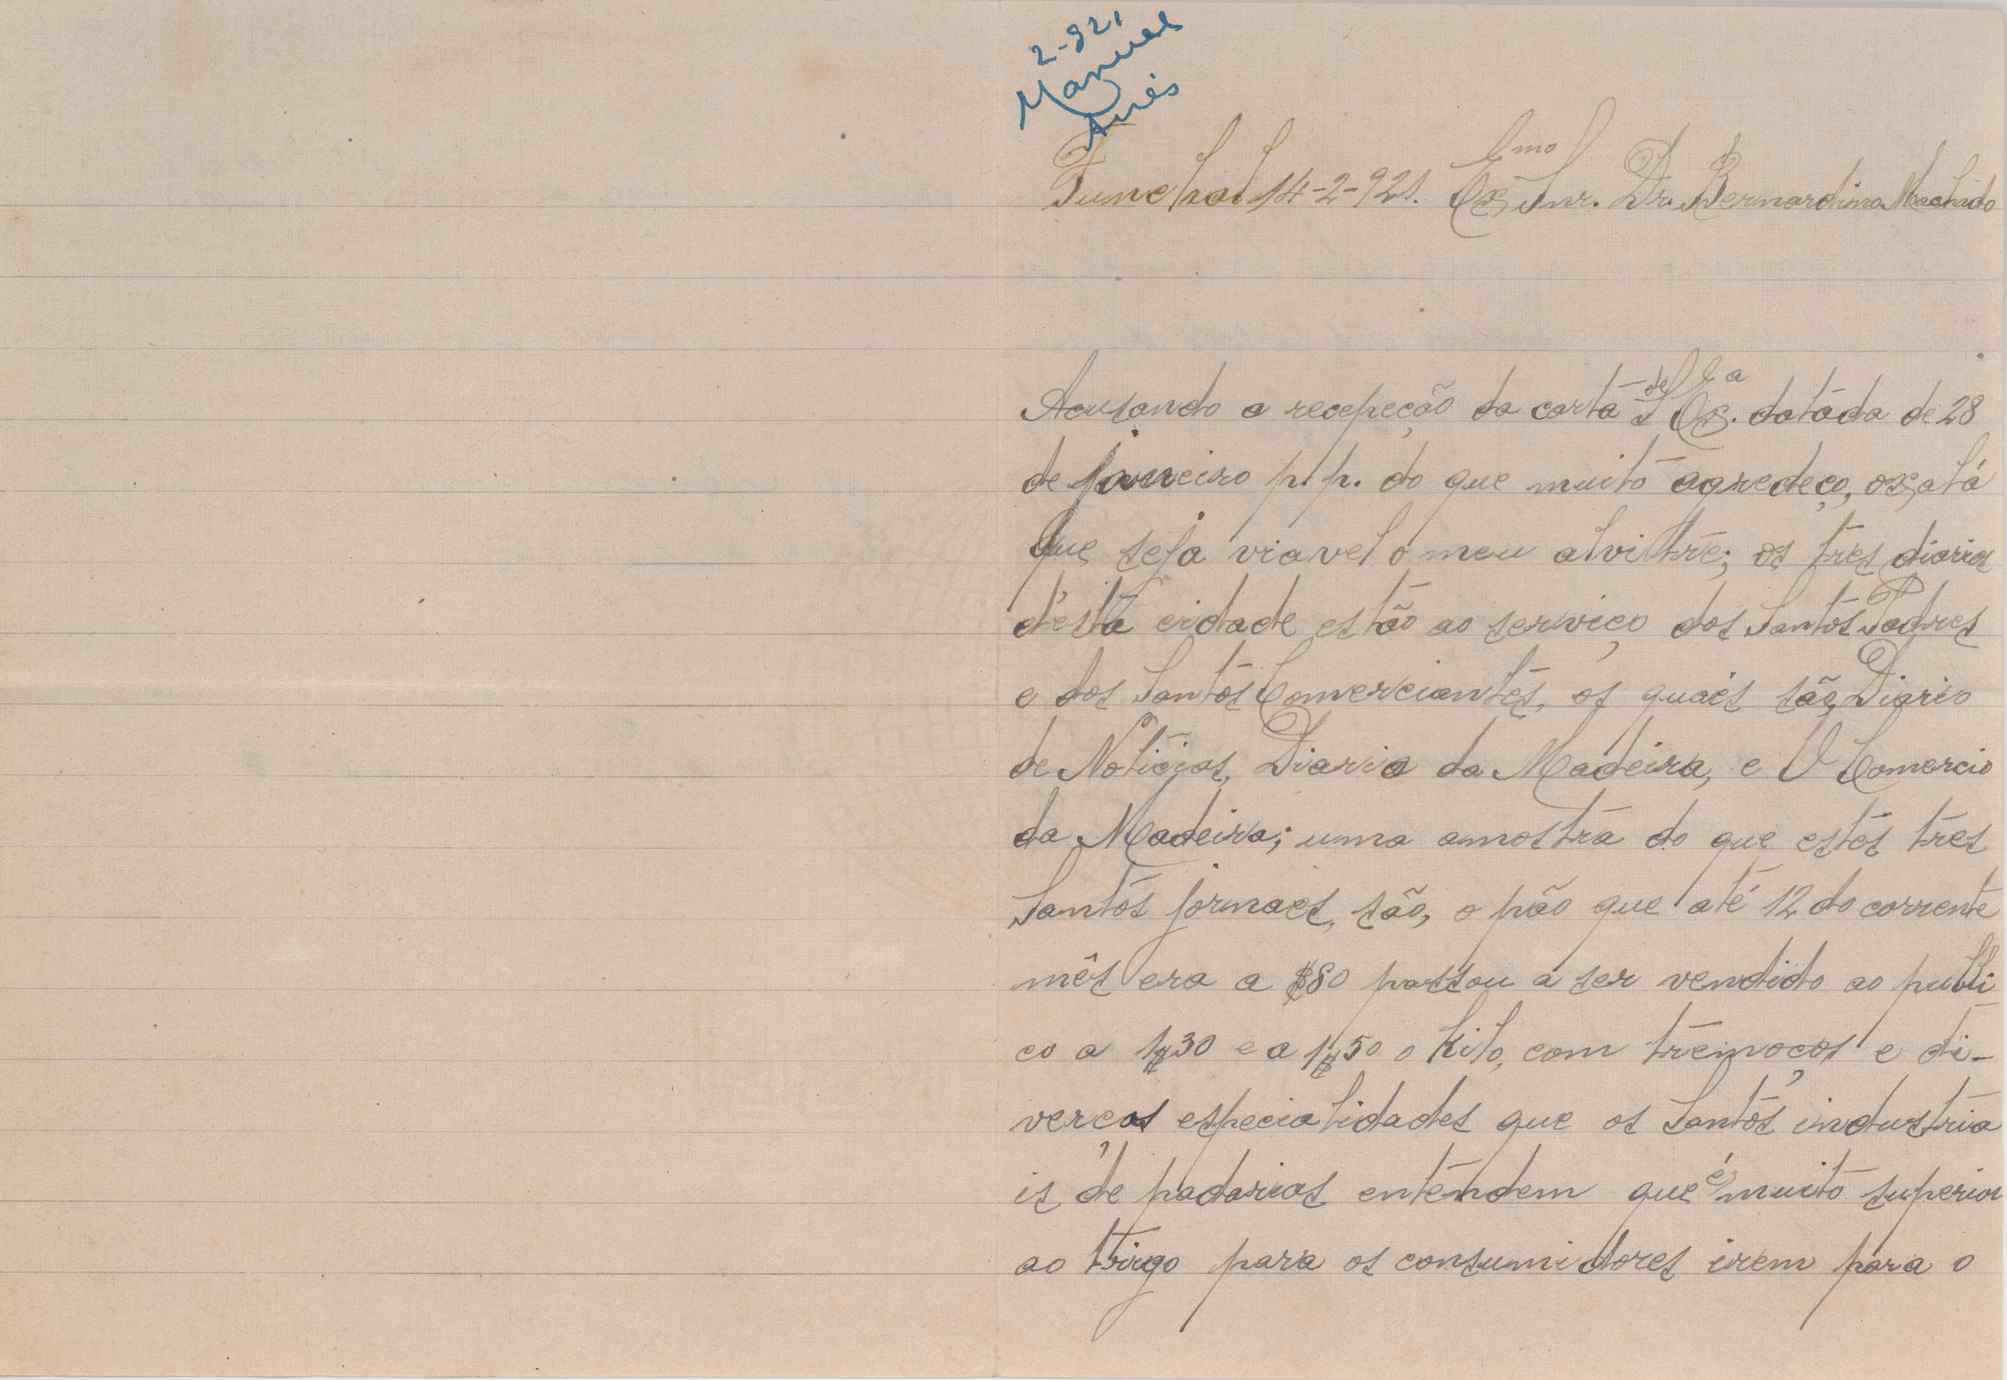 2-921
Manuel
Funchal 14-2-921. Exmo Snr. Dr. Bernardino Machado
Acusando a recepeção da carta de S Exa. datáda de 28
de janeiro p.p. do que muito agredeço, oxalá
que seja viavel o meu alvitre; os tres diarios
d'esta cidade estão ao serviço dos Santos Padres
e dos Santos Comerciantes, os quaes são, Diario
de Noticias, Diario da Madeira, e O Comercio
da Madeira; uma amostra do que estes tres
Santos jornaes, são, o pão que até 12 do corrente
mês era a $80 passou a ser vendido ao publi
co a 1$30 e a 1$50 o kilo, com tremoços e di-
verças especialidades que os Santos industria
is de padarias entendem que é muito superior
ao trigo para os consumidores irem para o